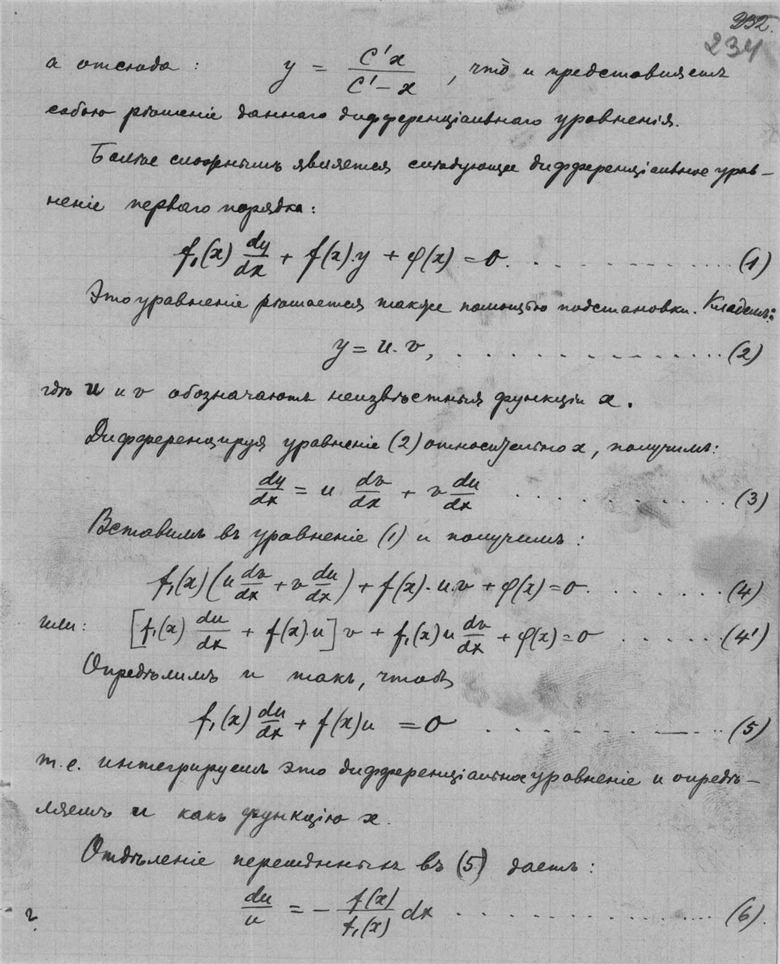 232.
234
а отсюда : y = C'x / (C' - x) , что и представляетъ
собою рѣшеніе даннаго дифференціальнаго уравненія.
Болѣе сложнымъ является слѣдующее дифференціальное урав-
неніе перваго порядка:
f₁(x) dy/dx + f(x).y + φ(x) = 0. . . . . . . . . . (1)
Это уравненіе рѣшается также помощью подстановки. Кладемъ:
y = u.v, . . . . . . . . . . (2)
гдѣ u и v обозначаютъ неизвѣстныя функціи x.
Дифференцируя уравненіе (2) относительно x, получимъ:
dy/dx = u dv/dx + v du/dx . . . . . . . . . . (3)
Вставимъ въ уравненіе (1) и получимъ:
f₁(x) (u dv/dx + v du/dx) + f(x).u.v + φ(x) = 0. . . . . . . (4)
или: [f₁(x) du/dx + f(x).u] v + f₁(x) u dv/dx + φ(x) = 0 . . . . . . (4')
Опредѣлимъ u такъ, чтобъ
f₁(x) du/dx + f(x)u = 0 . . . . . . . . . . (5)
т.е. интегрируемъ это дифференціальное уравненіе и опредѣ-
ляемъ u какъ функцію x.
Отдѣленіе перемѣнныхъ въ (5) даетъ:
du/u = - f(x)/f₁(x) dx . . . . . . . . . . (6).